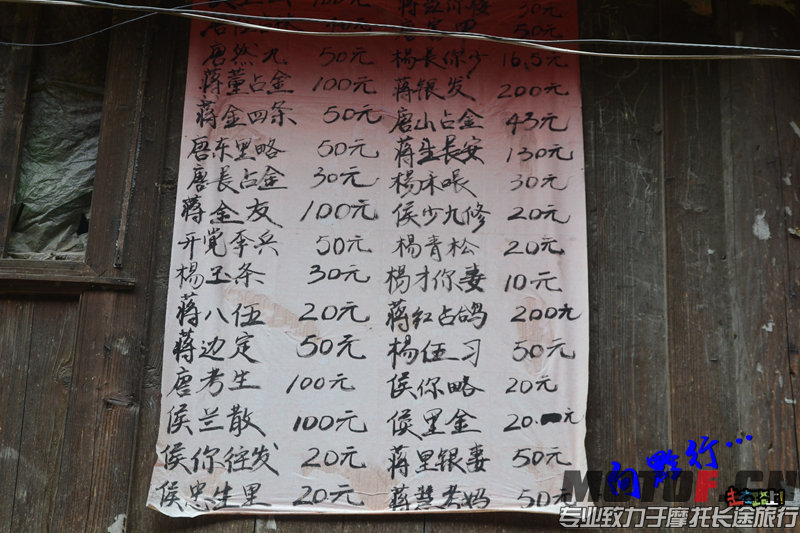 唐然九 50元 楊長你少 16.5元
蒋董占金 100元 蒋银发 200元
蒋金四条 50元 唐山占金 43元
唐东里略 50元 蒋生長安 130元
唐長占金 30元 楊床喂 30元
蒋金友 100元 侯少九修 20元
开党李兵 50元 楊青松 20元
楊玉条 30元 楊才你妻 10元
蒋八伍 20元 蒋红占鸽 200元
蒋边定 50元 楊伍习 50元
唐考生 100元 侯你略 20元
侯兰散 100元 侯里金 20.元
侯你往发 20元 蒋里银妻 50元
侯忠生里 20元 蒋慧老妈 50元
向黔行...
MOTOF.CN
专业致力于摩托长途旅行